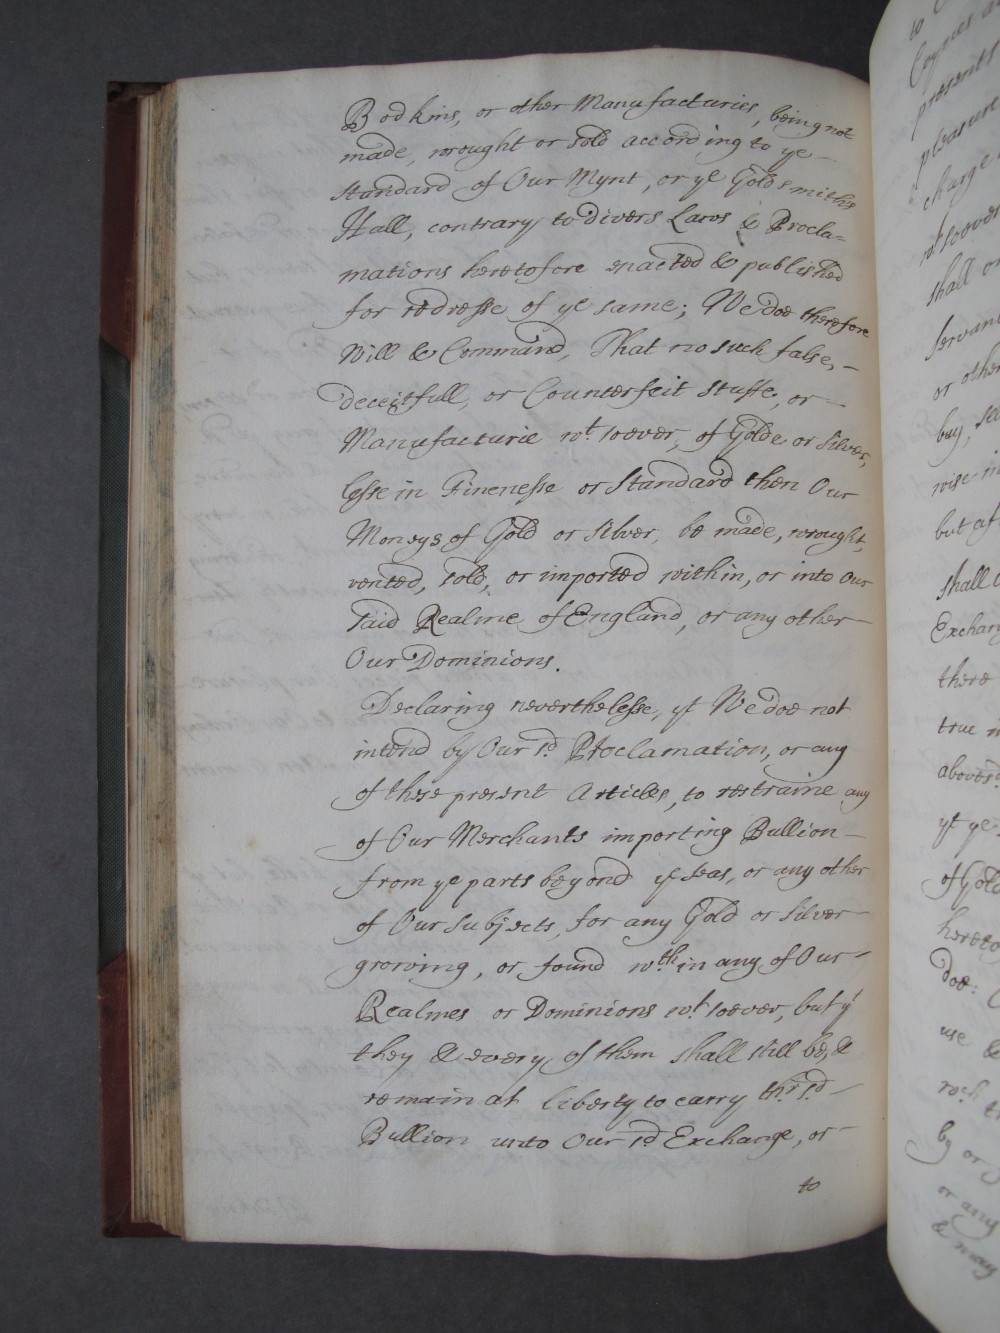 Bodkins, or other Manufacturies, being not
made, wrought or sold according to ye —
standard of Our Mynt, or ye Goldsmiths
Hall, contrary to divers Laws & Procla=
mations heretofore enacted & published
for redresse of ye same; We doe therefore
Will & Command, That no such false, —
deceitfull, or Counterfeit stuffe, or —
Manufacturie wt. soever, of Golde or Silver,
lesse in Finenesse or Standard then Our
Moneys of Gold or Silver, be made, wrought,
vented, sold, or imported within, or into Our
said Realme of England, or any other —
Our Dominions.
Declaring neverthelesse, yt We doe not
intend by Our sd. Proclamation, or any
of these present Articles, to restraine any
of Our Merchants importing Bullion —
from ye parts beyond ye Seas, or any other
of Our Subjects, for any Gold or Silver —
growing, or found wth.in any of Our —
Realmes or Dominions wt. soever, but yt
they & every of them shall still be, &
remain at liberty to carry thr. sd —
Bullion unto Our sd. Exchange, or —
to
Coynes
present
pleasure
charge
wt. soever
shall or
Servant
or other
buy, sell
wise
but af
shall
Exchan
there
true
abovesd.
yt ye
of Gold
hereto
doe:
use &
wch t
by or
or any
& may